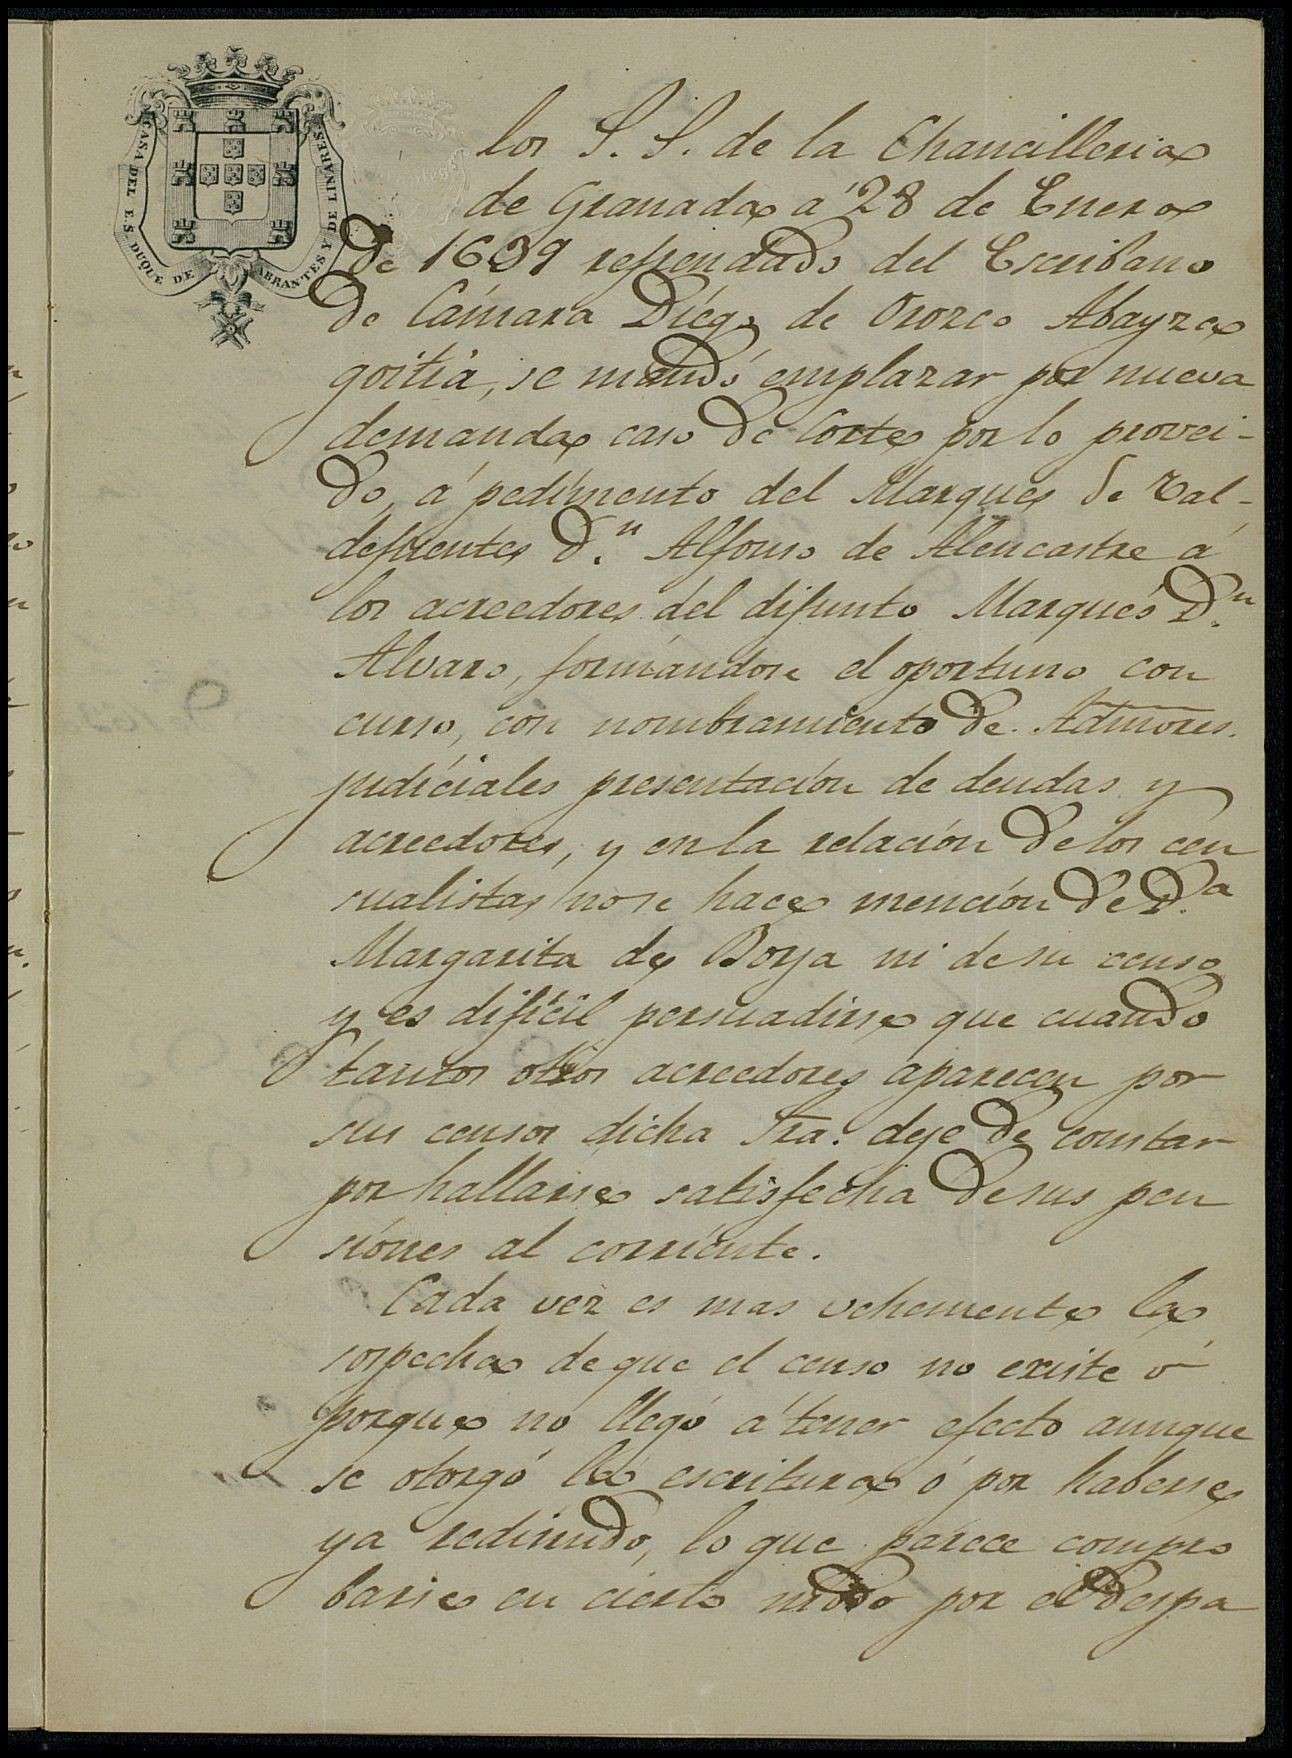 CASA DEL E.S. DUQUE DE ABRANTES Y DE LINARES
los S. S. de la Chancilleria
de Granada á 28 de Enero
de 1639 refrendado del Escribano
de Cámara Diego de Orozco Abayza
goitia, se mandó emplazar por nueva
demanda, caso de Corte, por lo provei-
do, á pedimento del Marques de Val-
defuentes D.n Alfonso de Alencastre á
los acreedores del difunto Marqués D.n
Alvaro, formándose el oportuno con
curso, con nombramiento de Admores.
judiciales presentación de deudas y
acreedores, y en la relación de los cen
sualistas no se hace mención de D.a
Margarita de Borja ni de su censo
y es dificil persuadirse que cuando
tantos otros acreedores aparecen por
sus censos dicha Sra. deje de constar
por hallarse satisfecha de sus pen
siones al corriente.
Cada vez es mas vehemente la
sospecha de que el censo no existe ó
porque no llegó á tener efecto aunque
se otorgó la escritura ó por haberse
ya redimido, lo que parece compro
barse en cierto modo por el despa